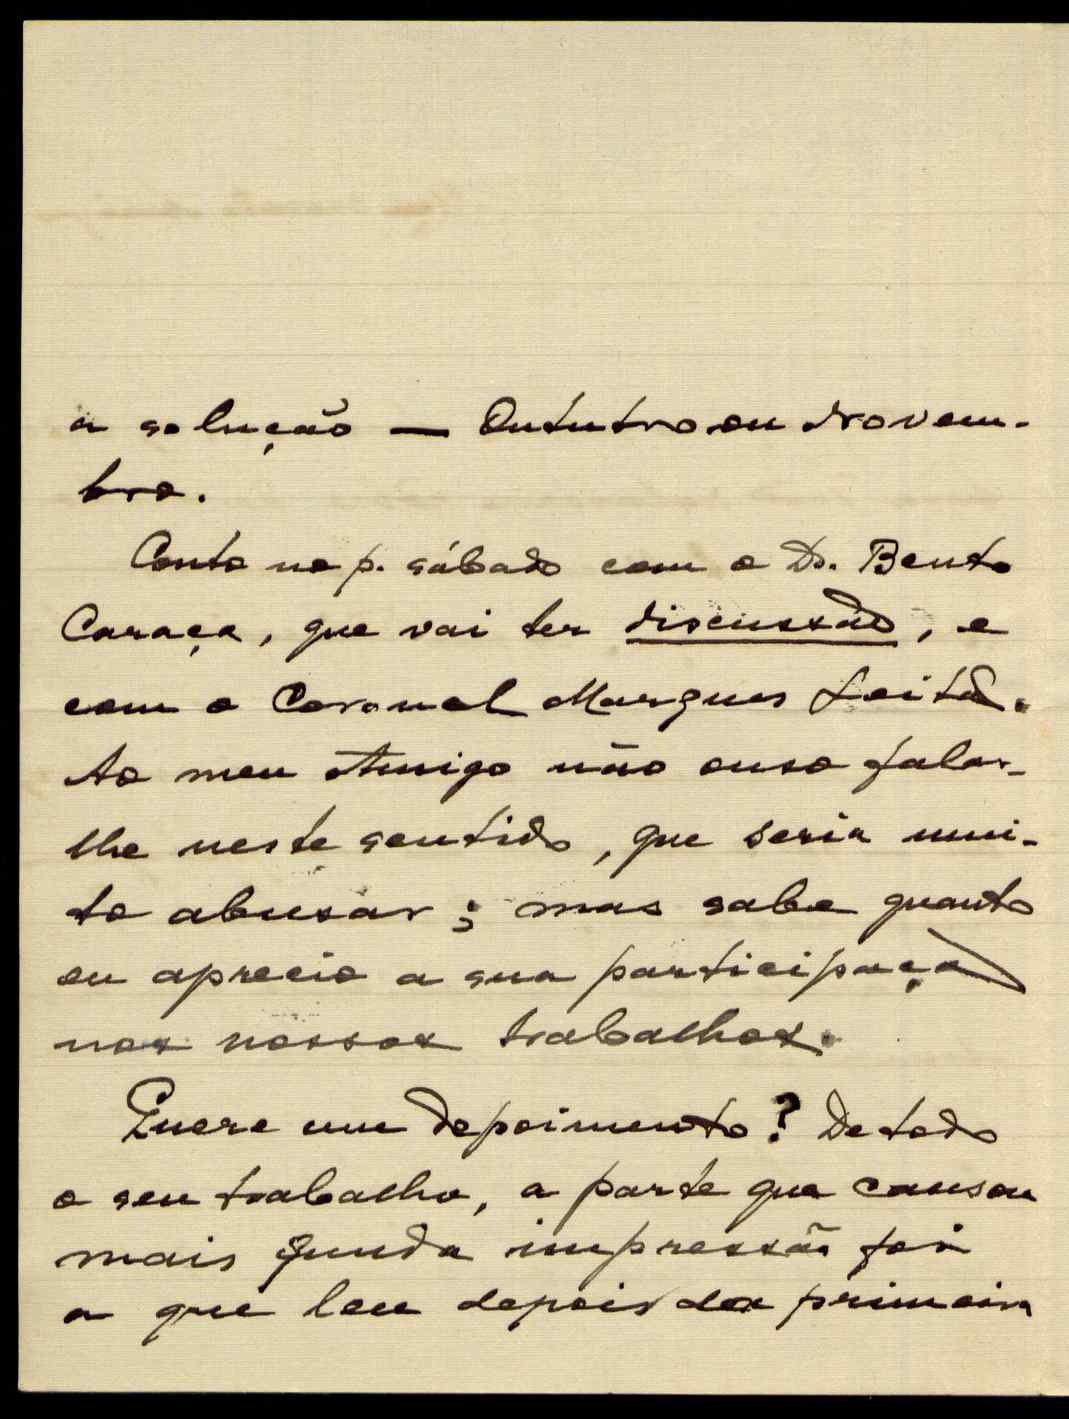 a solução — Outubro ou Novem-
bro.
Conto no p. sábado com o Dr. Bento
Caraça, que vai ter discussão, e
com o Coronel Marques Leitão.
Ao meu Amigo não ouso falar-
lhe neste sentido, que seria mui-
to abusar; mas sabe quanto
eu aprecio a sua participação
nos nossos trabalhos.
Quere um depoimento? De todo
o seu trabalho, a parte que causou
mais funda impressão foi
a que leu depois da primeira